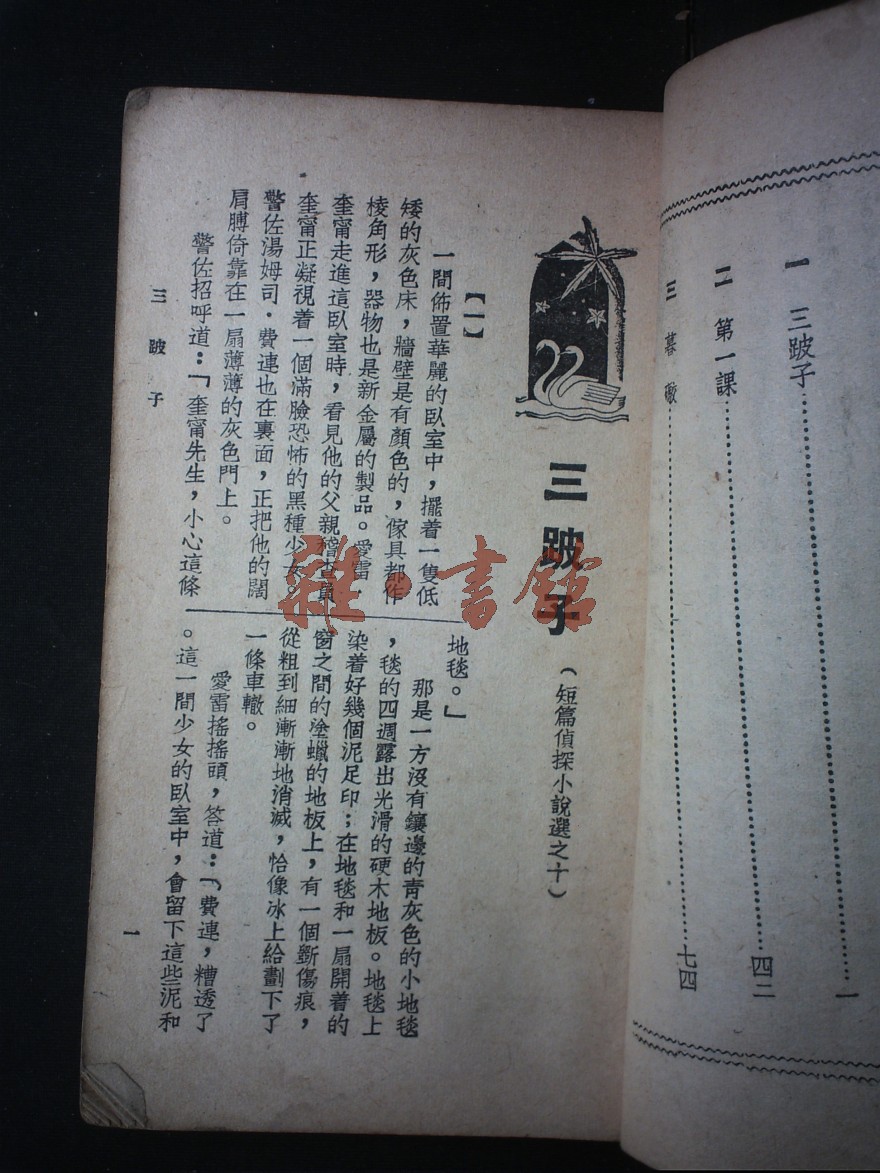 一 三跛子……一
二 第一課……四二
三 暮 轍……七四
三跛子
(短篇偵探小說選之十)
【一】
一間佈置華麗的臥室中，擺着一隻低
矮的灰色床，牆壁是有顏色的，傢具都作
棱角形，器物也是新金屬的製品。愛雷·
奎甯走進這臥室時，看見他的父親稽查員
奎甯正凝視着一個滿臉恐怖的黑種少女。
警佐湯姆司·費連也在裏面，正把他的闊
肩膊倚靠在一扇薄薄的灰色門上。
警佐招呼道：「奎甯先生，小心這條
地毯。」
那是一方沒有鑲邊的青灰色的小地毯
，毯的四週露出光滑的硬木地板。地毯上
染着好幾個泥足印；在地毯和一扇開着的
窗之間的塗蠟的地板上，有一個斵傷痕，
從粗到細漸漸地消滅，恰像冰上給劃下了
一條車轍。
愛雷搖搖頭，答道：「費連，糟透了
。這一間少女的臥室中，會留下這些泥和
三跛子
一
雜·書館